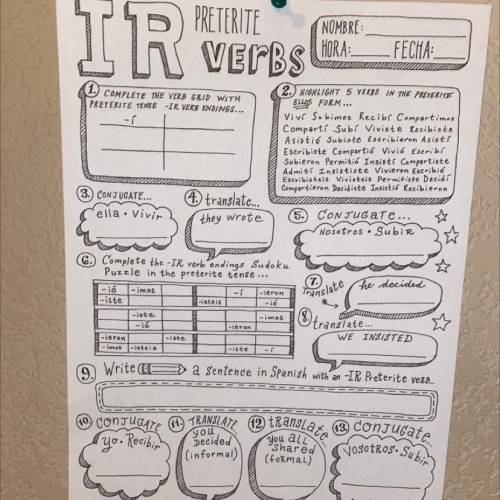 IR PRETERITE
VERBS
NOMBRE:
HORA: FECHA:
1. COMPLETE THE VERB GRID WITH
PRETERITE TENSE -IR VERB ENDINGS...
-í
2. HIGHLIGHT 5 VERBS IN THE PRETERITE
ELLOS FORM...
Viví Subimos Recibí Compartimos
Compartí Subí Viviste Recibiste
Asistió Subiste Escribieron Asistí
Escribiste Compartió Vivió Escribí
Subieron Permitió Insistí Compartiste
Admití Insististe Vivieron Escribió
Escribisteis Vivisteis Permitiste Decidí
Compartieron Decidiste Insistió Recibieron
3. CONJUGATE...
ella • Vivir
4. translate...
they wrote
5. CONJUGATE...
Nosotros • Subir
6. Complete the -IR verb endings Sudoku
Puzzle in the preterite tense...
-ió -imos -í -ieron
-iste -isteis -ió
-iste -imos
-ió -ieron
-ieron -iste
-imos -isteis -iste -í
7. Translate
he decided
8. translate...
WE INSISTED
9. Write a sentence in Spanish with an -IR Preterite verb...
10. CONJUGATE
yo • Recibir
11. TRANSLATE
you
Decided
(informal)
12. translate...
you all
Shared
(formal)
13. conjugate...
Vosotros • Subir